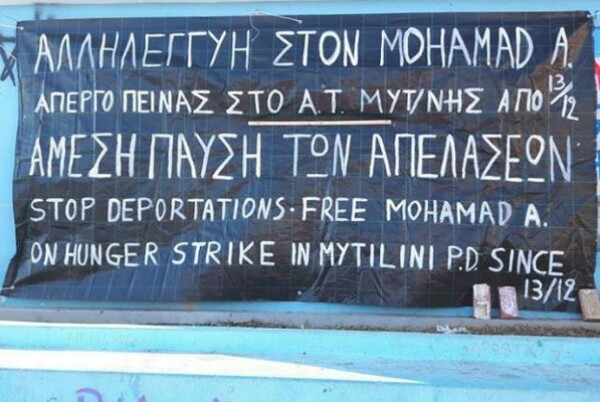 ΑΛΛΗΛΕΓΓΥΗ ΣΤΟΝ MOHAMAD A.
ΑΠΕΡΓΟ ΠΕΙΝΑΣ ΣΤΟ Α.Τ. ΜΥΤ/ΝΗΣ ΑΠΟ 13/12
ΑΜΕΣΗ ΠΑΥΣΗ ΤΩΝ ΑΠΕΛΑΣΕΩΝ
STOP DEPORTATIONS · FREE MOHAMAD A.
ON HUNGER STRIKE IN MYTILINI P.D. SINCE
13/12